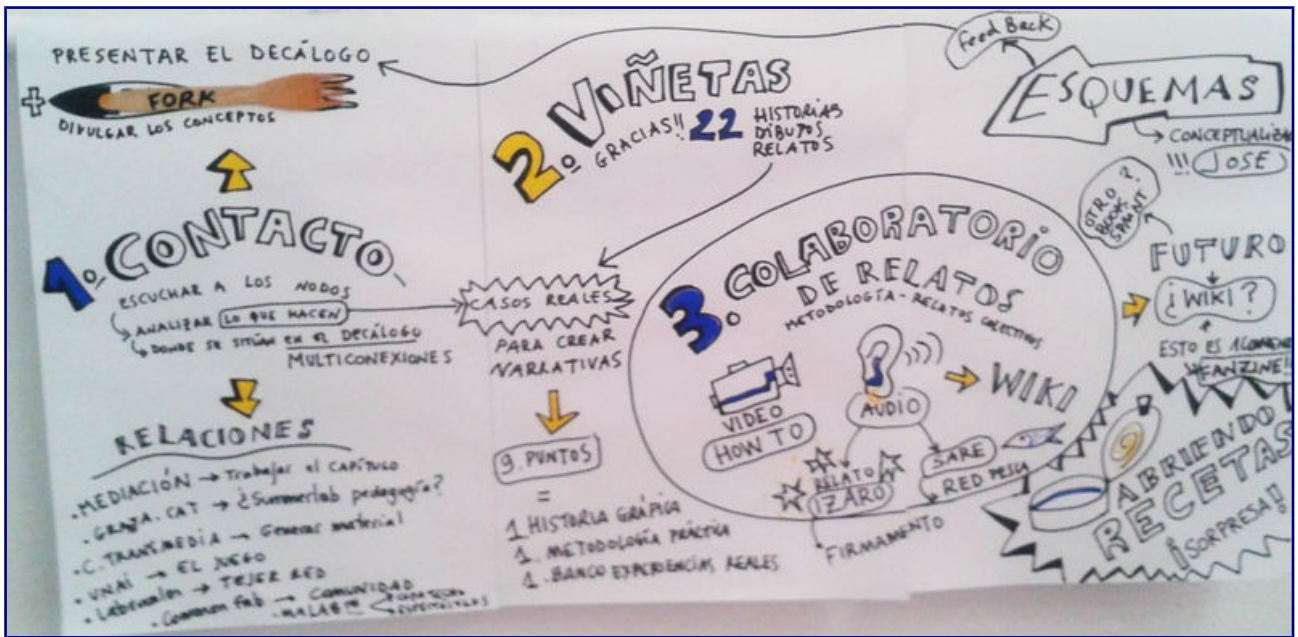 PRESENTAR EL DECÁLOGO
+ FORK
DIVULGAR LOS CONCEPTOS
1º CONTACTO
ESCUCHAR A LOS NODOS
ANALIZAR LO QUE HACEN
DONDE SE SITÚAN EN EL DECÁLOGO
MULTICONEXIONES
RELACIONES
. MEDIACIÓN → Trabajar el CAPÍTULO
. GRAJA.CAT → ¿Summerlab pedagogía?
. C. TRANSMEDIA → Generar material
. UNAI → EL JUEGO
. → TEJER RED
. Common fab → COMUNIDAD
. MALAB
2º VIÑETAS
GRACIAS!! 22 HISTORIAS
DIBUJOS
RELATOS
CASOS REALES
PARA CREAR
NARRATIVAS
9. PUNTOS
=
1 HISTORIA GRÁFICA
1. METODOLOGÍA PRÁCTICA
1. BANCO EXPERIENCIAS REALES
3. COLABORATORIO
DE RELATOS
METODOLOGÍA - RELATOS COLECTIVOS
VIDEO
HOW TO
AUDIO
WIKI
RELATO
IZARO
FIRMAMENTO
SARE
RED PESCA
Feed Back
ESQUEMAS
→ CONCEPTUALIZA
!!! JOSE
OTRO ?
BOOK
SPRINT
FUTURO
¿WIKI?
ESTO ES 1
FANZINE!!
ABRIENDO
RECETAS
¡SORPRESA!